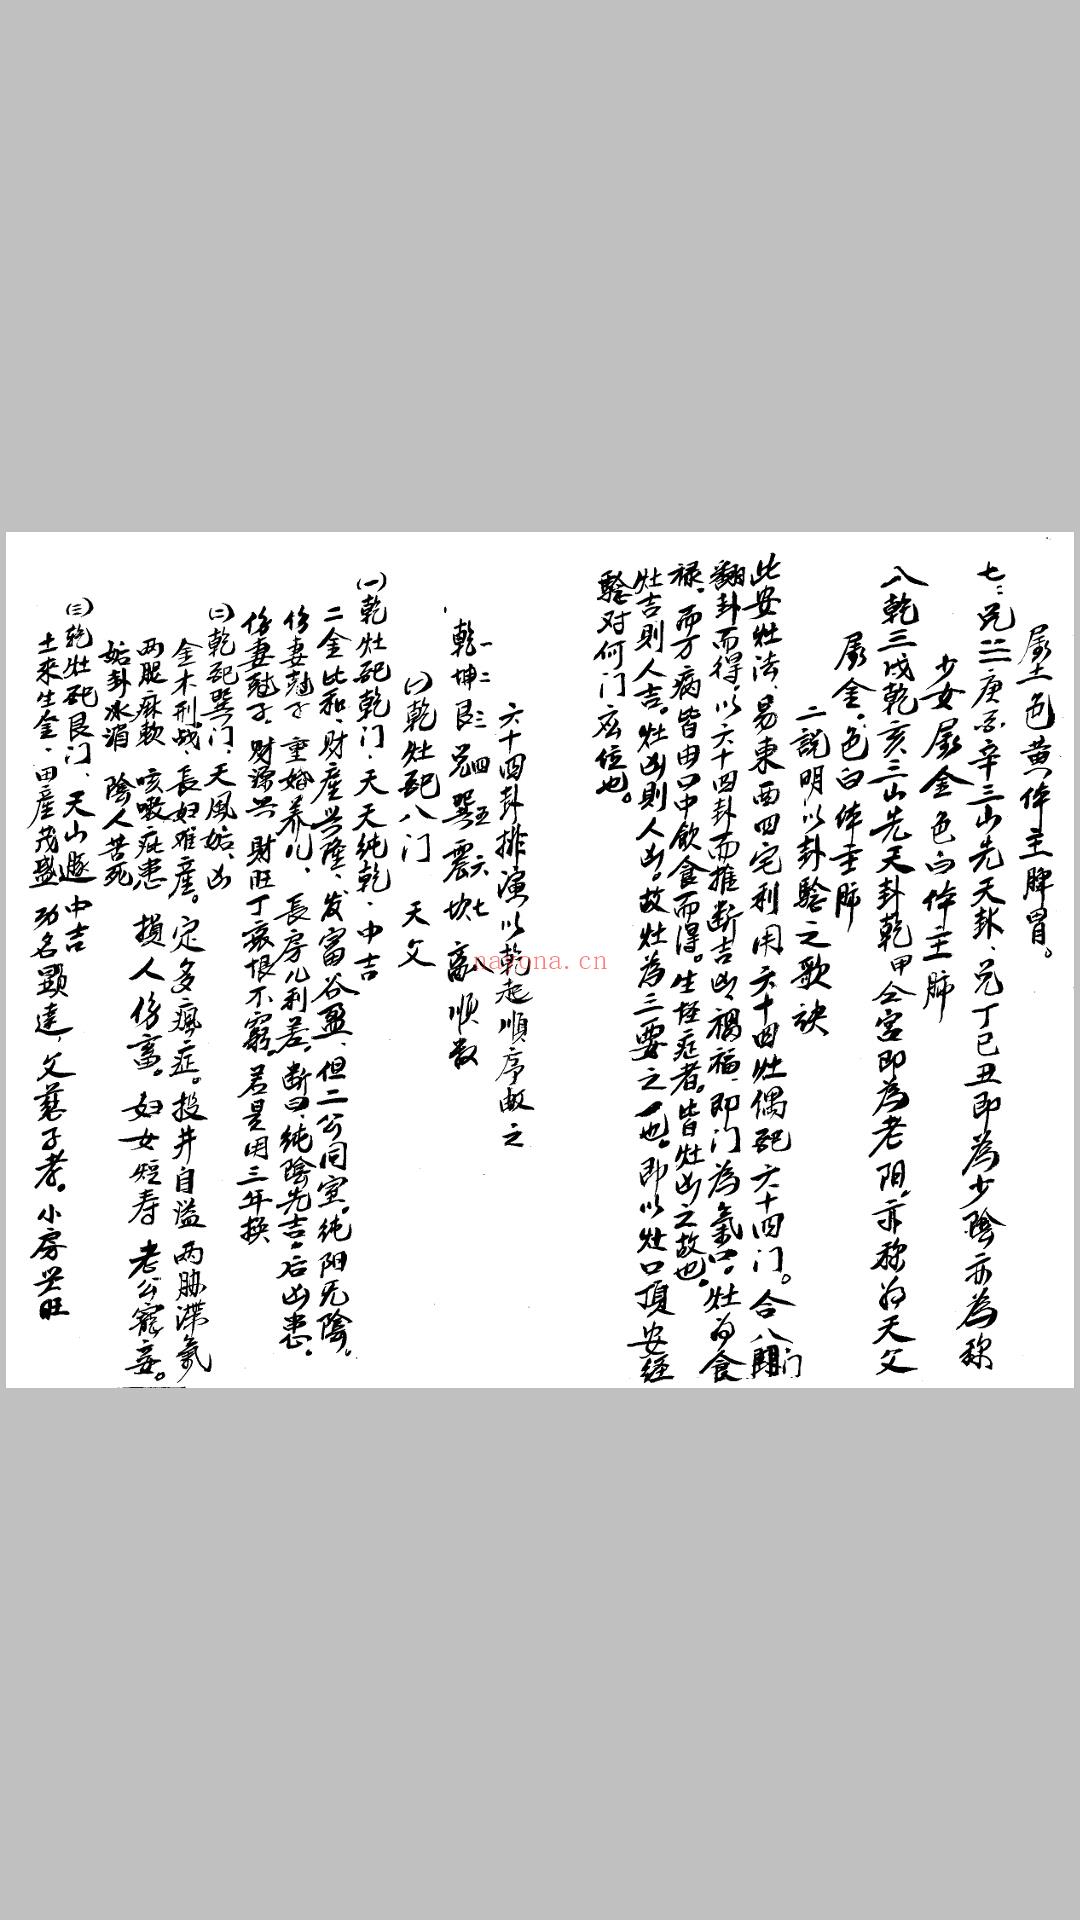 属土色黄体主脾胃。
七：兑☱庚酉辛三山先天卦、兑丁巳丑即為少陰亦為称
少女属金色白体主肺
八乾☰戌乾亥三山先天卦乾甲仝宮即為老阳，亦称为天父
属金。色白体主肺
二說明以卦驗之歌訣
此安灶法，易東西四宅利用六十四灶偶配六十四门。合八門
翻卦而得，以六十四卦而推断吉凶禍福，即门為氣口。灶为食
禄，而万病皆由口中飲食而得。生怪症者。皆灶凶之故也。
灶吉則人吉。灶凶則人凶。故灶為三要之一也。即以灶口頂安经
驗对何门庒位也。
六十四卦排演以乾起順序取之
乾一坤二艮三兌四巽五震六坎七离順数
(一)乾灶配八门 天父
(一)乾灶配乾门、天天纯乾、中吉
二金比和、財産興隆、发富谷盈、但二公同室。纯阳无陰。
伤妻尅子 重婚养儿、長房儿利差。断曰、纯陰先吉。后凶患。
伤妻尅子，財源兴 財旺丁衰恨不窮。若是用三年换
(二)乾配巽门、天風姤、凶
金木刑战、長妇难産。定多瘋症。投井自溢 两胁滞氣
两腿麻軟 咳嗽症患 損人伤畜。妇女短寿 老公寵妾。
姤卦冰消 陰人苦死
(三)乾灶配艮门、天山遯 中吉
土来生金、田産茂盛 功名顕達，父慈子孝。小房兴旺
nayona.cn